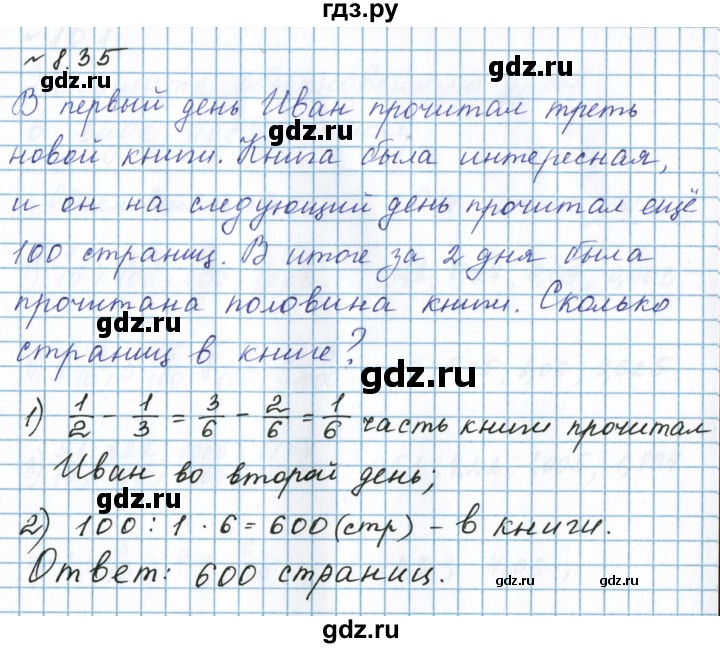 гдз.ру
№ 8.35
В первый день Иван прочитал треть
gdz.ru
новой книги. Книга была интересная,
и он на следующий день прочитал ещё
gdz.ru
100 страниц. В итоге за 2 дня была
прочитана половина книги. Сколько
gdz.ru
страниц в книге?
gdz.ru
1) 1/2 - 1/3 = 3/6 - 2/6 = 1/6 часть книги прочитал
Иван во второй день;
gdz.ru
2) 100 : 1 · 6 = 600 (стр) - в книги.
Ответ: 600 страниц.
gdz.ru
gdz.ru
gdz.ru